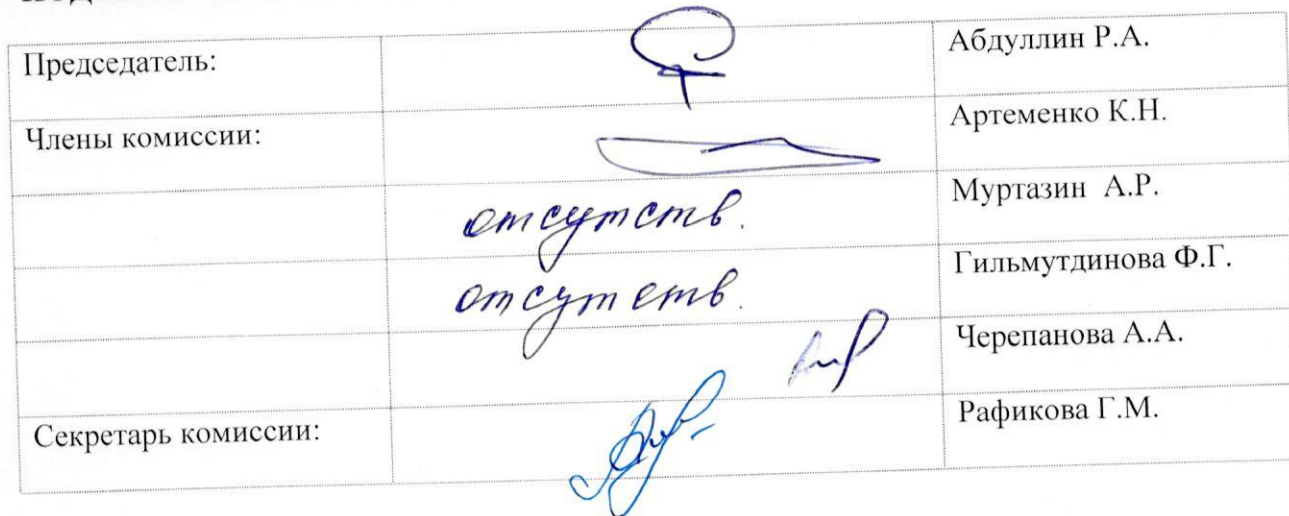 Председатель: Абдуллин Р.А.
Члены комиссии: Артеменко К.Н.
отсутств. Муртазин А.Р.
отсутств. Гильмутдинова Ф.Г.
Черепанова А.А.
Секретарь комиссии: Рафикова Г.М.